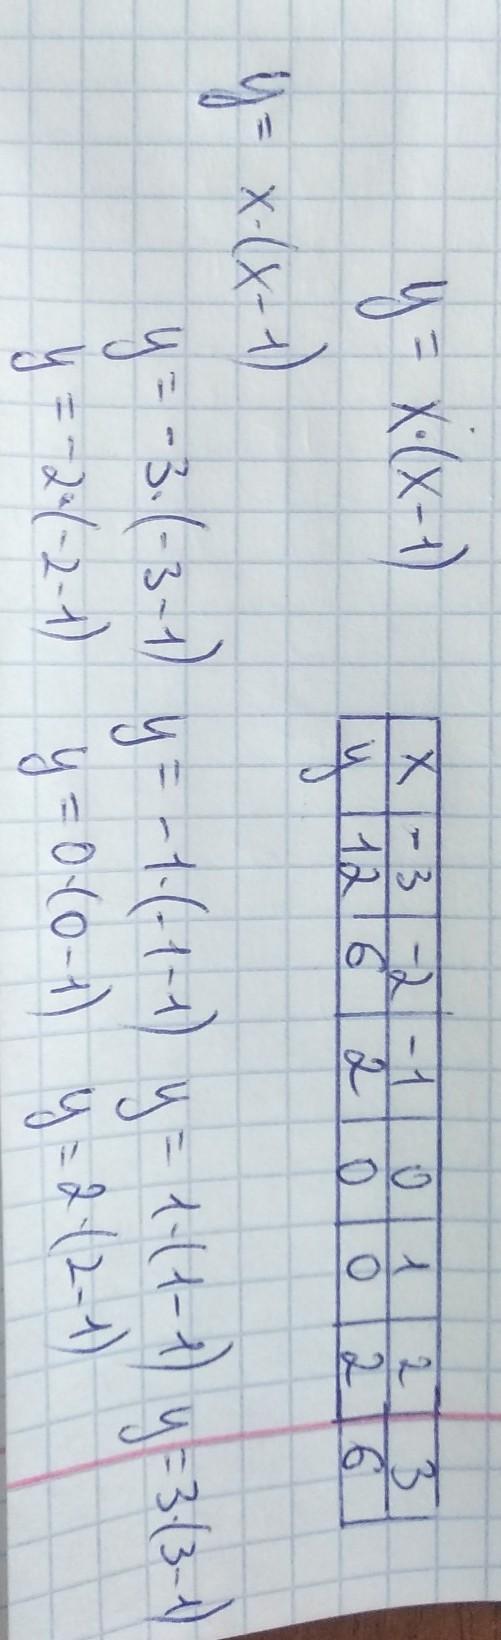 y = x·(x-1)
x -3 -2 -1 0 1 2 3
y 12 6 2 0 0 2 6
y = x·(x-1)
y = -3·(-3-1) y = -1·(-1-1) y = 1·(1-1) y = 3·(3-1)
y = -2·(-2-1) y = 0·(0-1) y = 2·(2-1)